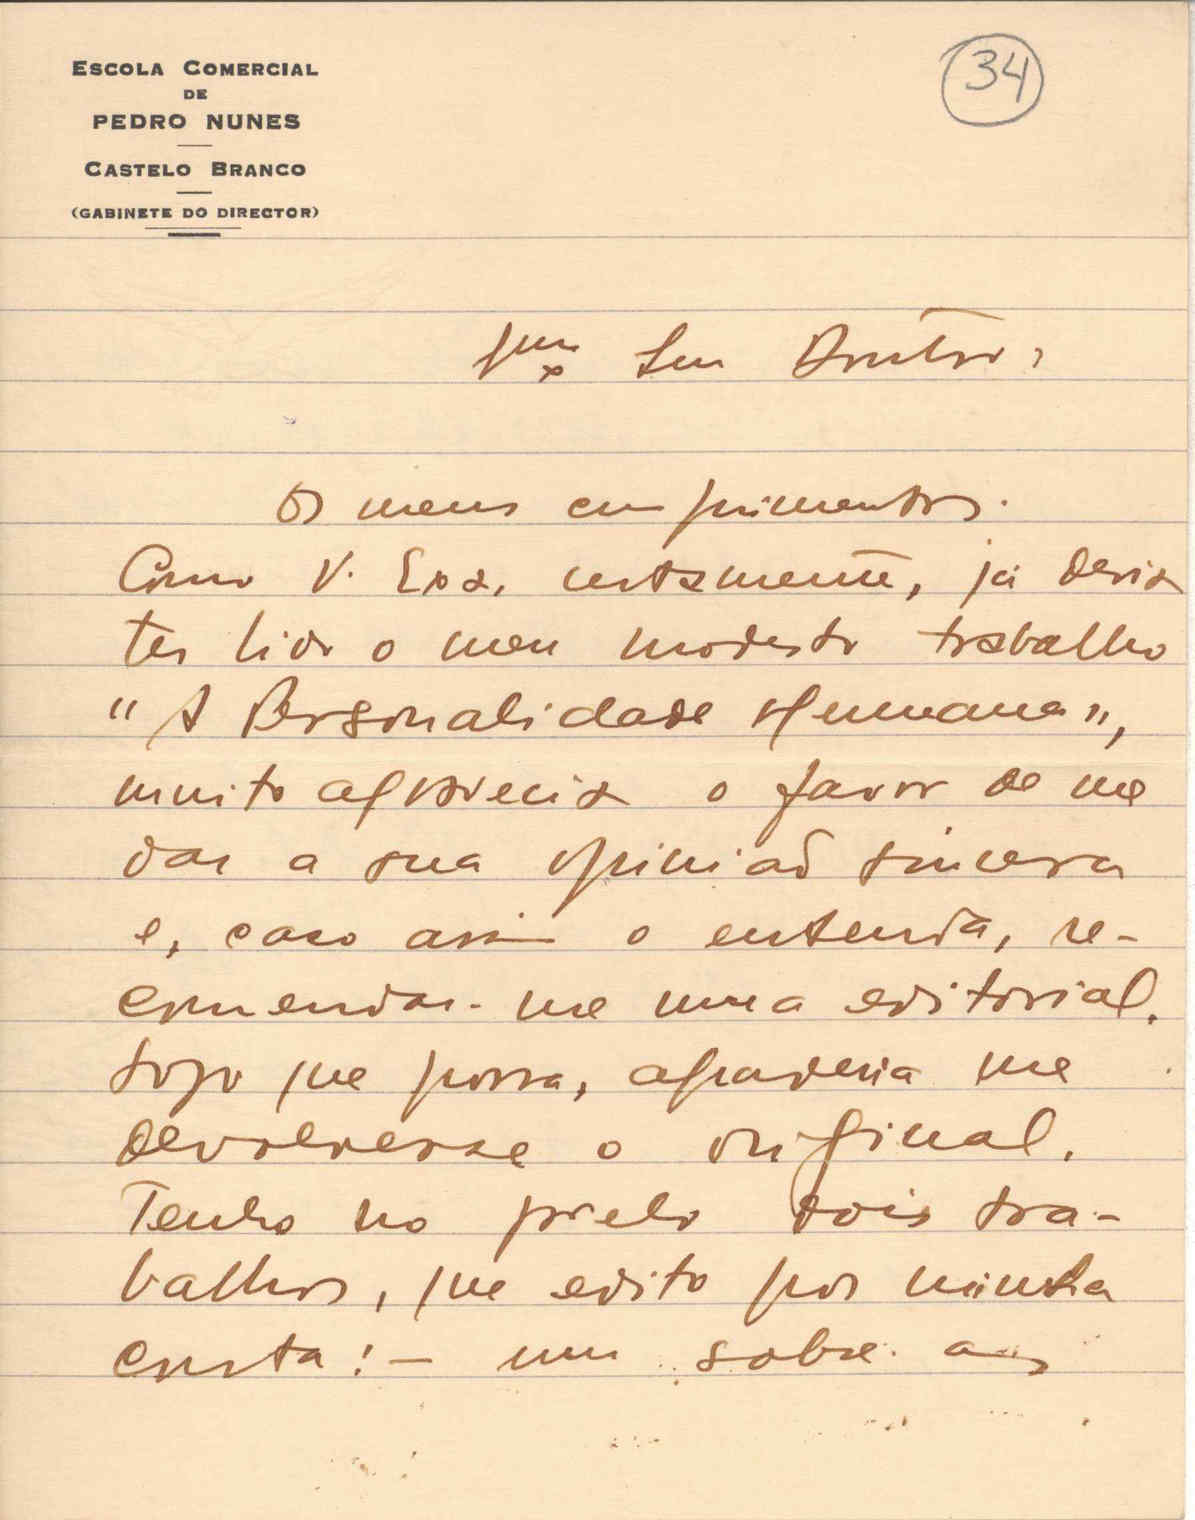 ESCOLA COMERCIAL
DE
PEDRO NUNES
CASTELO BRANCO
(GABINETE DO DIRECTOR)
34
Senr Doutor,
Os meus cumprimentos.
Como V. Exa. certamente, já deria
ter lido o meu modesto trabalho
"A Personalidade Humana",
muito aprecia o favor de me
dar a sua opinião sincera
e, caso assim o entenda, re-
comendar-me uma editorial.
Logo que possa, agradecia me
devolvesse o original.
Tenho no prelo dois tra-
balhos, que edito por minha
custa: - um sobre as